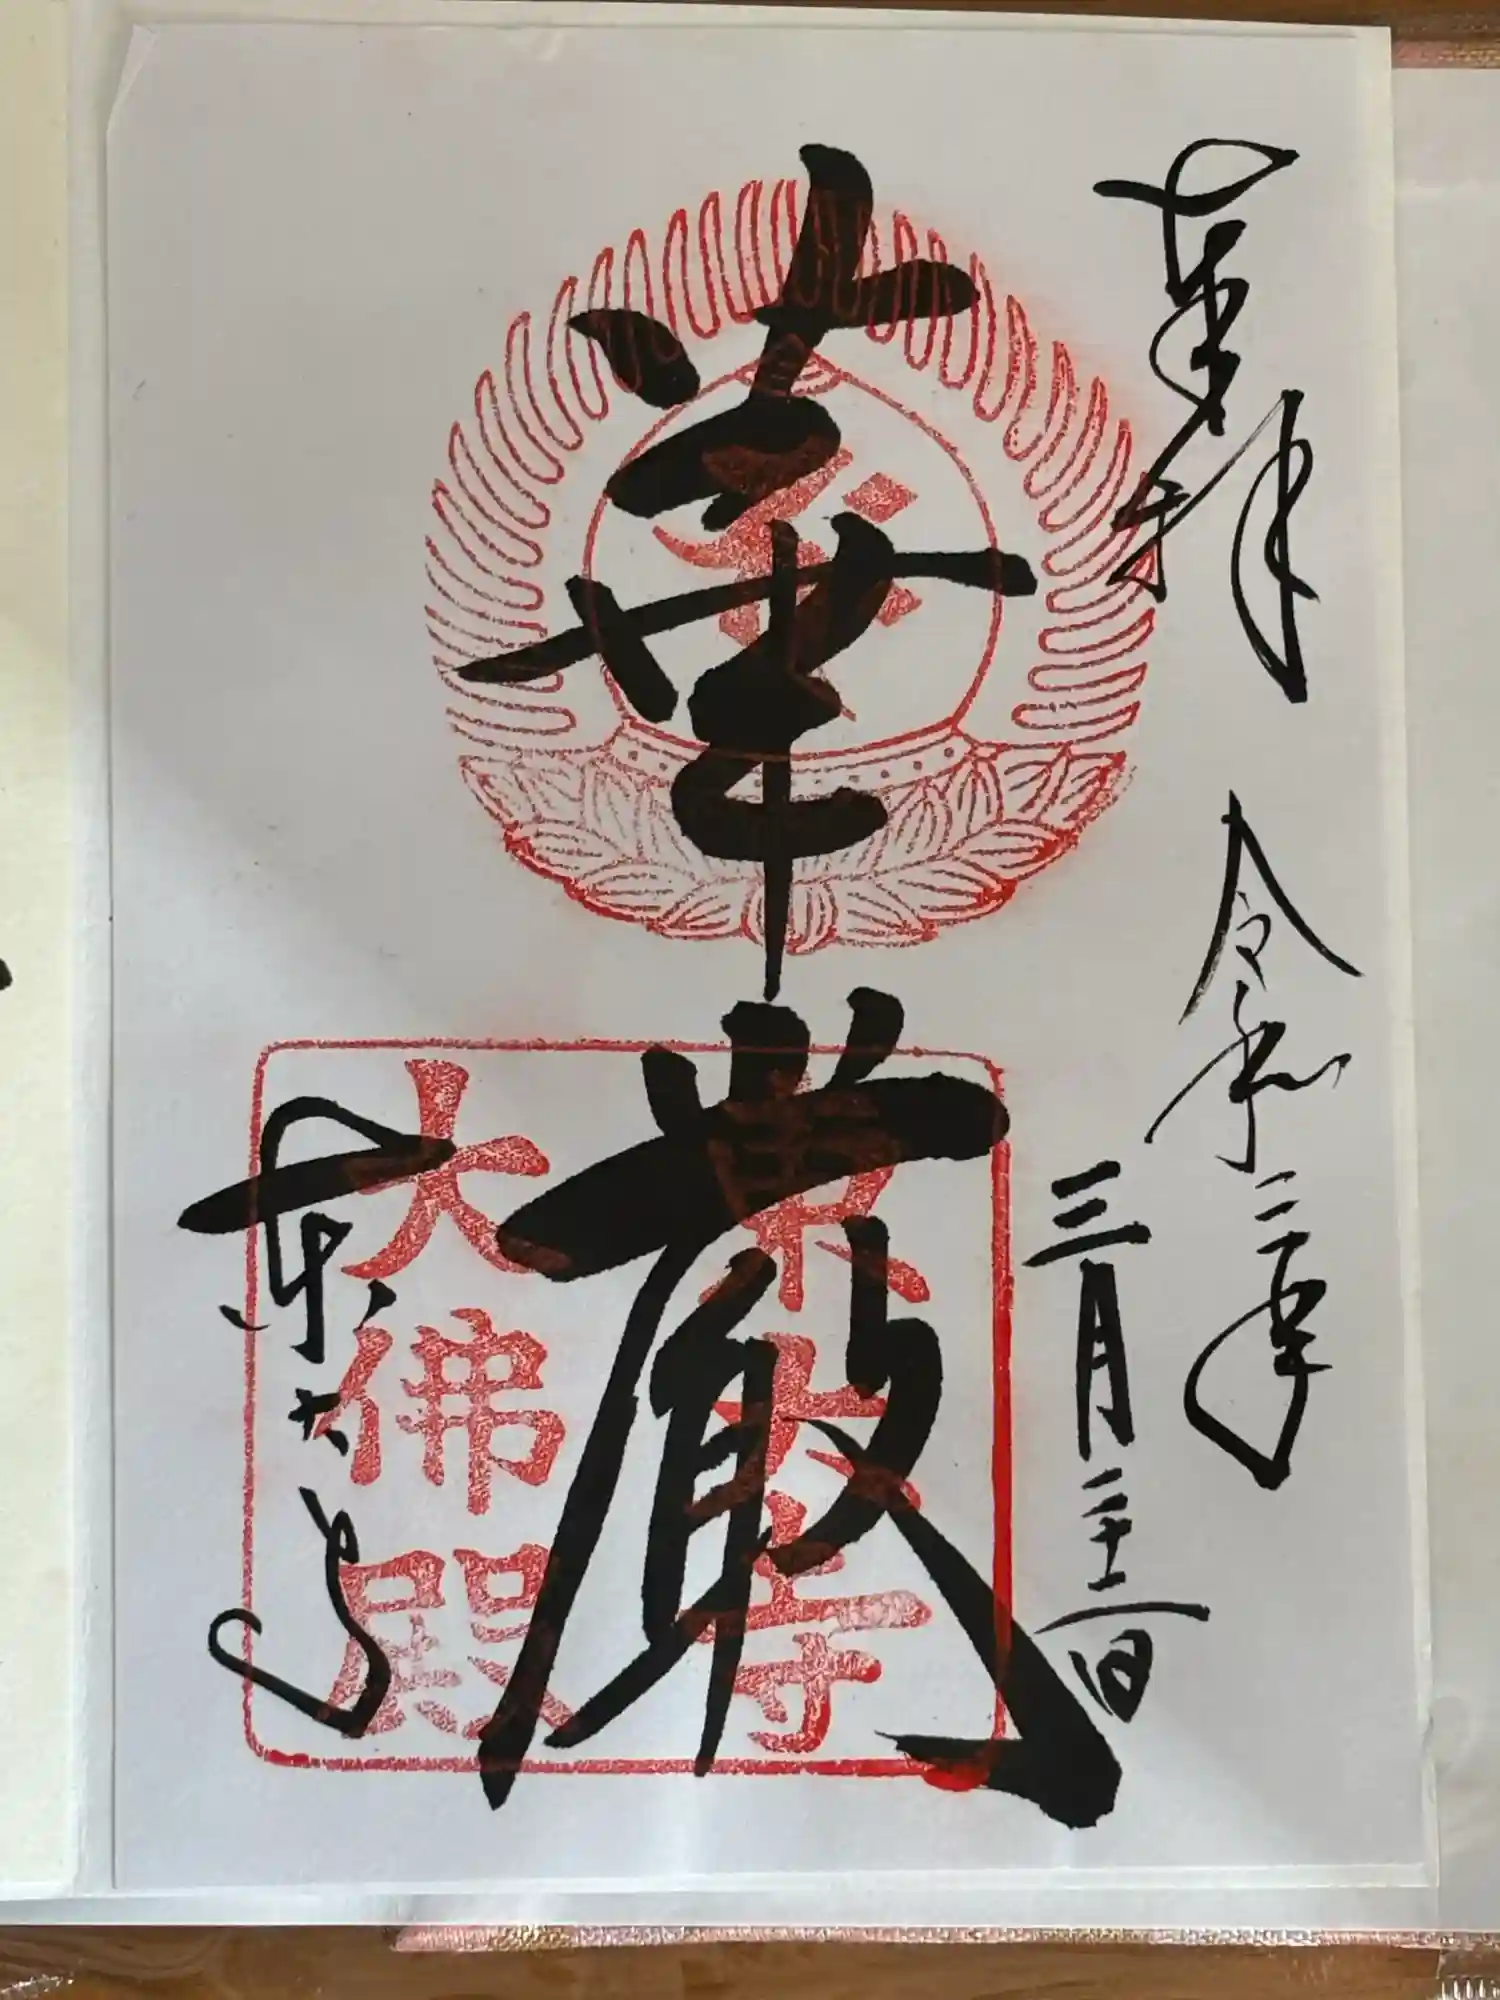 奉拝
令和二年
三月二十一日
華厳
東大寺
大佛殿
東大寺